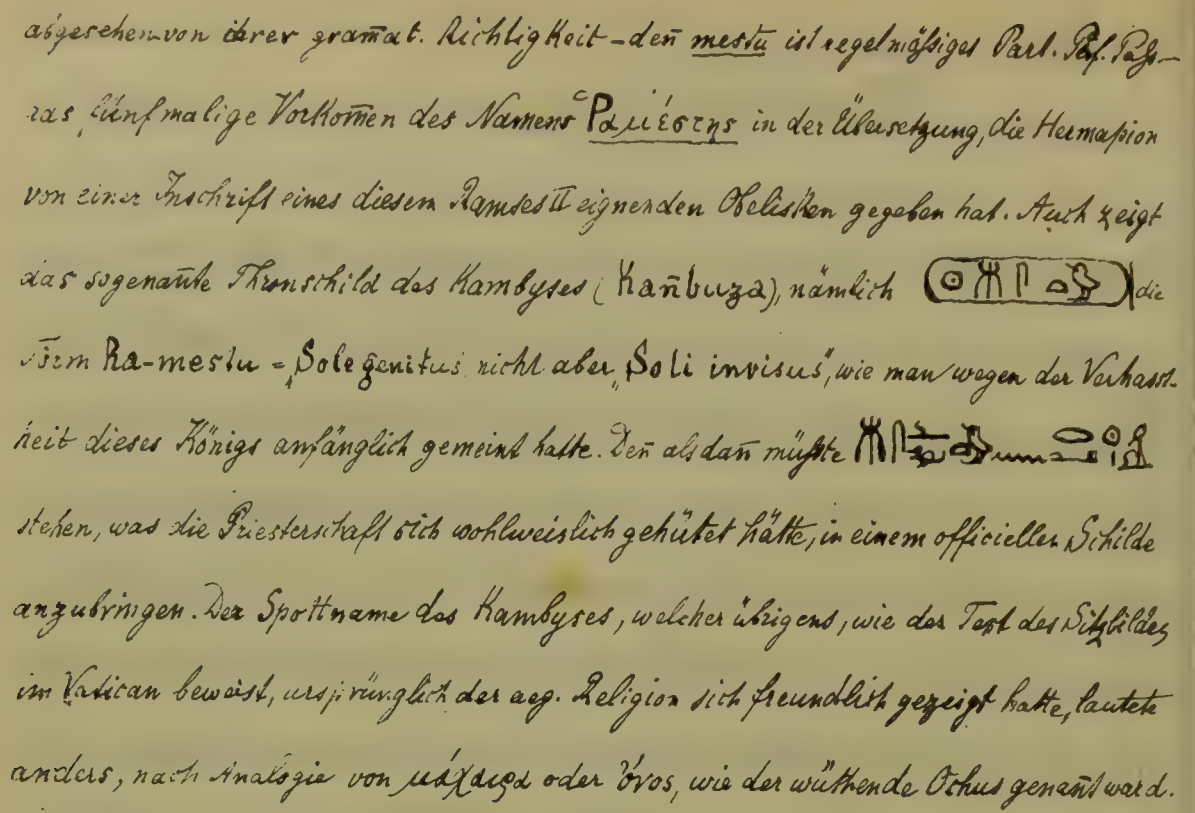 abgesehen von ihrer gram̄at. Richtigkeit – den̄ mestu ist regelmäßiges Part. Pf. Paß –
das fünfmalige Vorkom̄en des Namens Ῥαμέστης in der Übersetzung, die Hermapion
von einer Inschrift eines diesem Ramses II eignenden Obelisken gegeben hat. Auch zeigt
das sogenan̄te Thronschild des Kambyses (Kan̄buza), nämlich 𓇳𓄟𓋴𓏏𓅱 die
Form Ra-mestu = „Sole genitus" nicht aber „Soli invisus", wie man wegen der Verhasst-
heit dieses Königs anfänglich gemeint hatte. Den̄ alsdan̄ müßte
stehen, was die Priesterschaft sich wohlweislich gehütet hätte, in einem officiellen Schilde
anzubringen. Der Spottname des Kambyses, welcher übrigens, wie der Text des Sitzbildes
im Vatican beweist, ursprünglich der aeg. Religion sich freundlich gezeigt hatte, lautete
anders, nach Analogie von μάχαιρα oder ὄνος, wie der wüthende Ochus genan̄t ward.